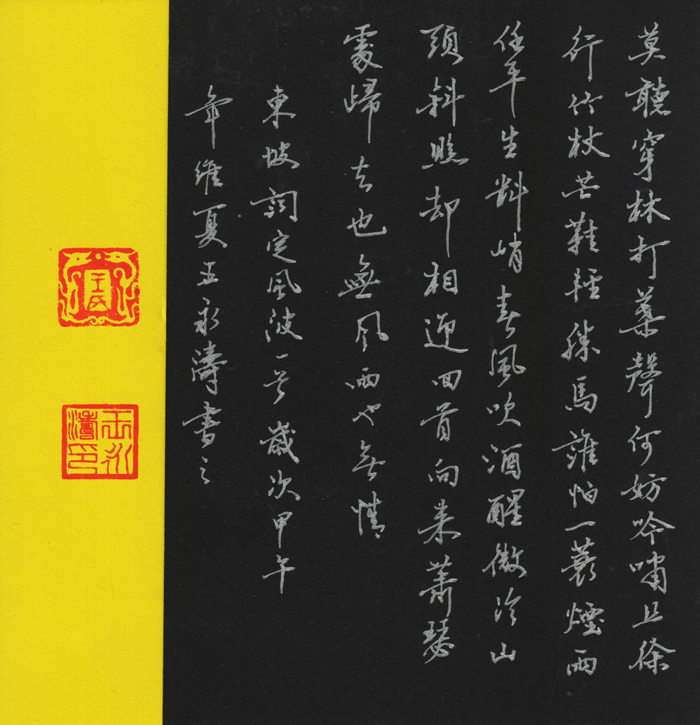 莫聽穿林打葉聲何妨吟嘯且徐
行竹杖芒鞋輕勝馬誰怕一蓑煙雨
任平生料峭春風吹酒醒微冷山
頭斜照却相迎回首向来蕭瑟
處歸去也無風雨也無情
東坡詞定風波一首歲次甲午
年維夏王永濤書之
王永濤印